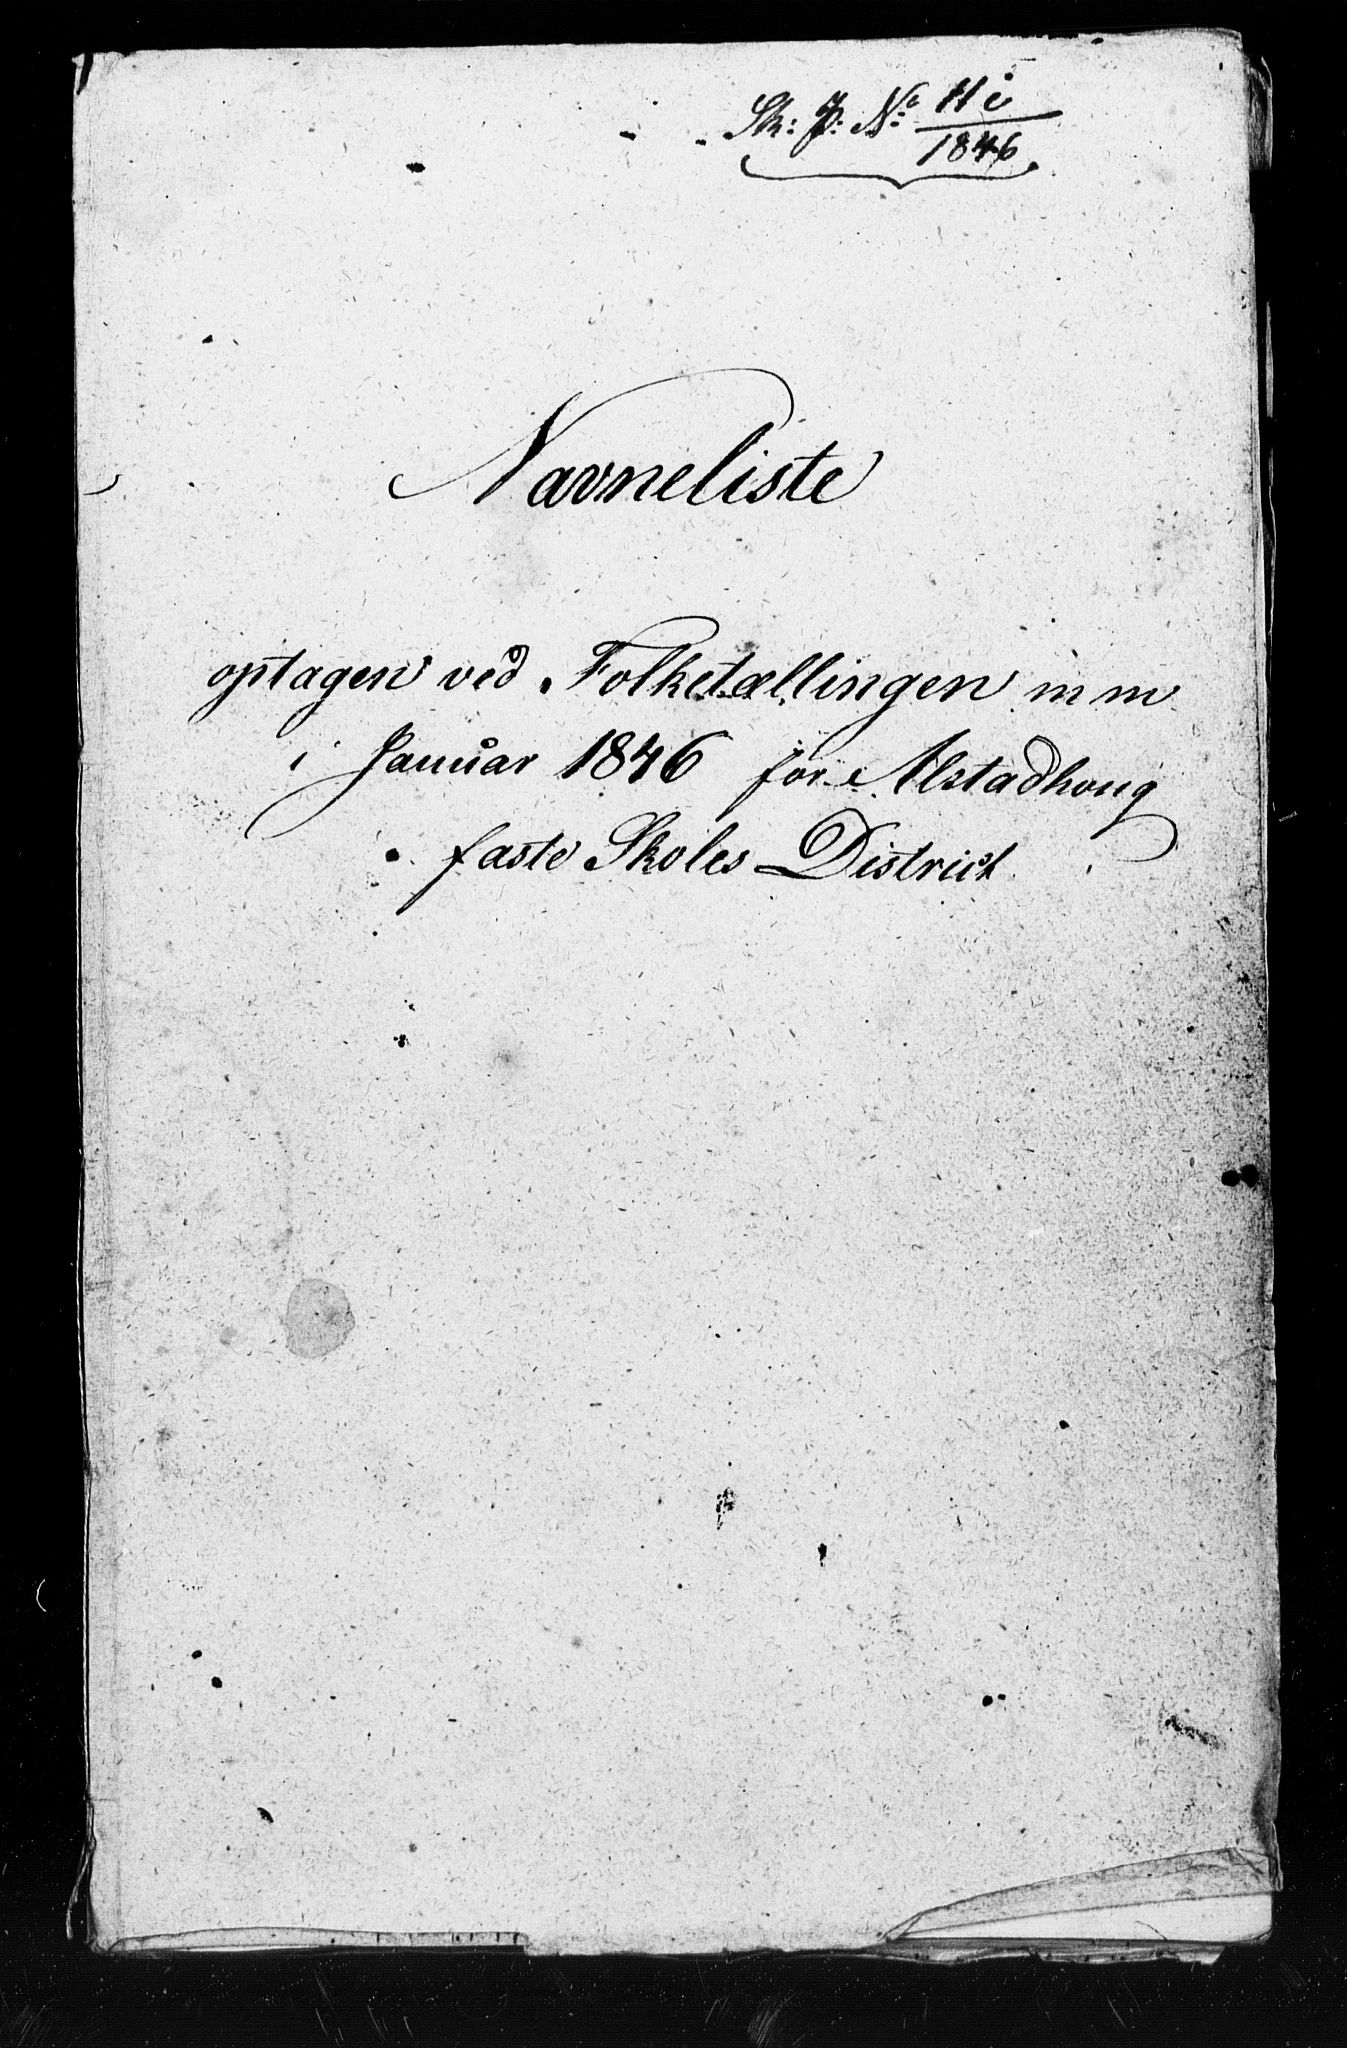 Sk: P: No: 11 i
1846
Navneliste
optagen ved Folketællingen m m
i Januar 1846 for Alstadhoug
faste Skoles District